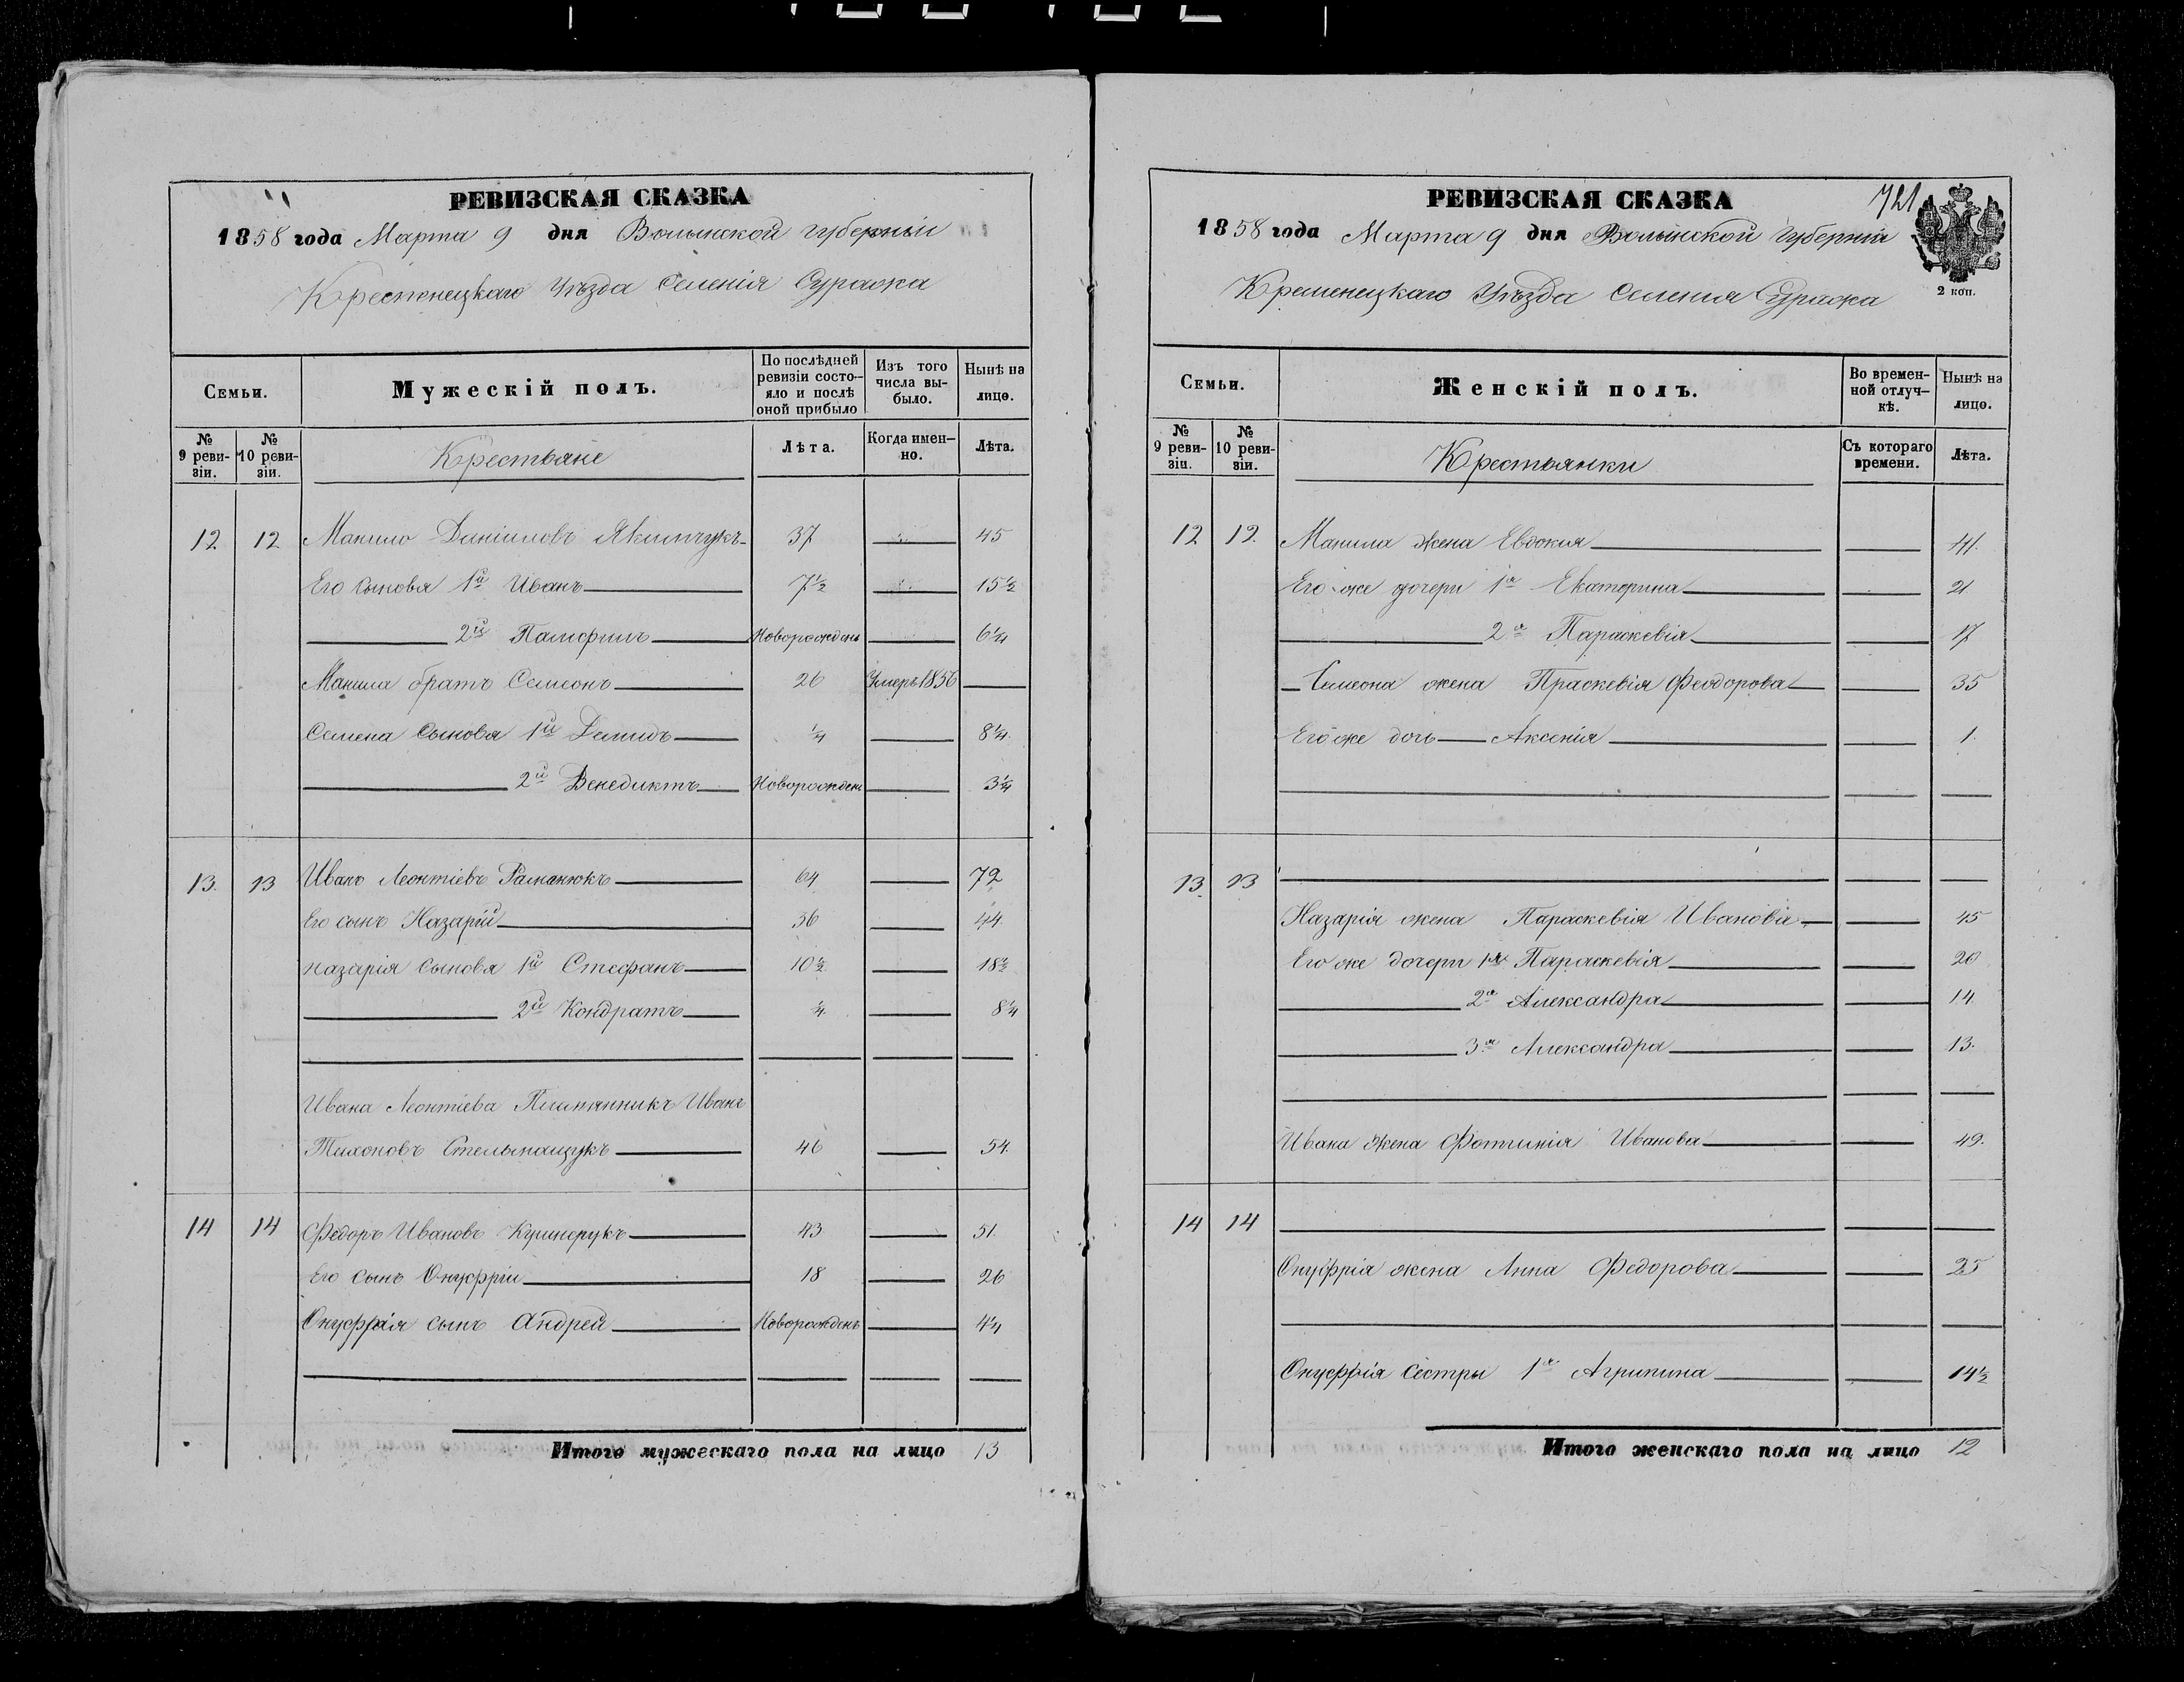 РЕВИЗСКАЯ СКАЗКА
1858 года Марта 9 дня Волынской губерніи
Кременецкаго Уѣзда Селенія Суража
Семьи.
Мужескій полъ.
По послѣдней ревизіи состояло и послѣ оной прибыло
Изъ того числа выбыло.
Нынѣ на лицо.
№ 9 ревизіи.
№ 10 ревизіи.
Крестьяне
Лѣта.
Когда именно.
Лѣта.
12 12 Данииловъ Якимчукъ 37 45
Его сыновья 1й Иванъ 7½ 15½
2й Памфилъ Новорожденъ 6¼
братъ Семеонъ 26 Умеръ 1856
Семена сыновья 1й Демидъ ¼ 8¼
2й Венедиктъ Новорожден 3¼
13. 13 Иванъ Леонтіевъ Романюкъ 64 72
Его сынъ Назарій 36 44
Назарія сыновья 1й Стефанъ 10½ 18½
2й Кондратъ ¼ 8¼
Ивана Леонтіева Племянникъ Иванъ
Тихоновъ Стельмащукъ 46 54.
14 14 Федоръ Ивановъ 43 51.
Его сынъ Онуфрій 18 26
Онуфрія сынъ Андрей Новорожденъ 4¼
Итого мужескаго пола на лицо 13
РЕВИЗСКАЯ СКАЗКА
721
1858 года Марта 9 дня Волынской губерніи
Кременецкаго Уѣзда Селенія Суража
2 коп.
Семьи.
Женскій полъ.
Во временной отлучкѣ.
Нынѣ на лицо.
№ 9 ревизіи.
№ 10 ревизіи.
Крестьянки
Съ котораго времени.
Лѣта.
12 12. жена Евдокия 41.
Его же дочери 1я Екатерина 21
2я Параскевія 17
Семеона жена Праскевія Феодорова 35
Его же дочь Аксенія 1.
13 13
Назарія жена Параскевія Иванова 45
Его же дочери 1я Параскевія 20
2я Александра 14
3я Александра 13.
Ивана жена Фотинія Иванова 49.
14 14
Онуфрія жена Анна Федорова 25
Онуфрія сестры 1я Агрипина 14½
Итого женскаго пола на лицо 12